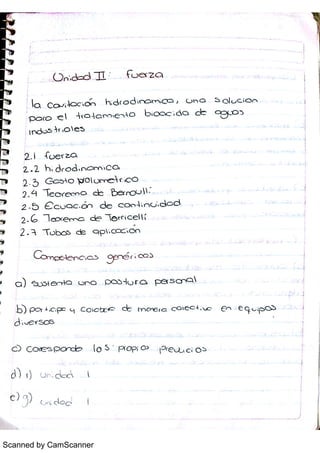 Unidad II: fuerza
la Cavitación hidrodinamica, una Solución
para el tratamiento bioácida de aguas
industriales
2.1 fuerza
2.2 hidrodinamica
2.3 Gasto volumetrico
2.4 Teorema de Bernoulli
2.5 Ecuación de continuidad
2.6 Teorema de Torricelli
2.7 Tubos de aplicación
Competencias genéricas
a) sustenta una postura personal
b) participe y colabore de manera colectiva en equipos
diversos
c) corresponde los propios
d) 1) Unidad 1
e) g) Unidad 1
Scanned by CamScanner